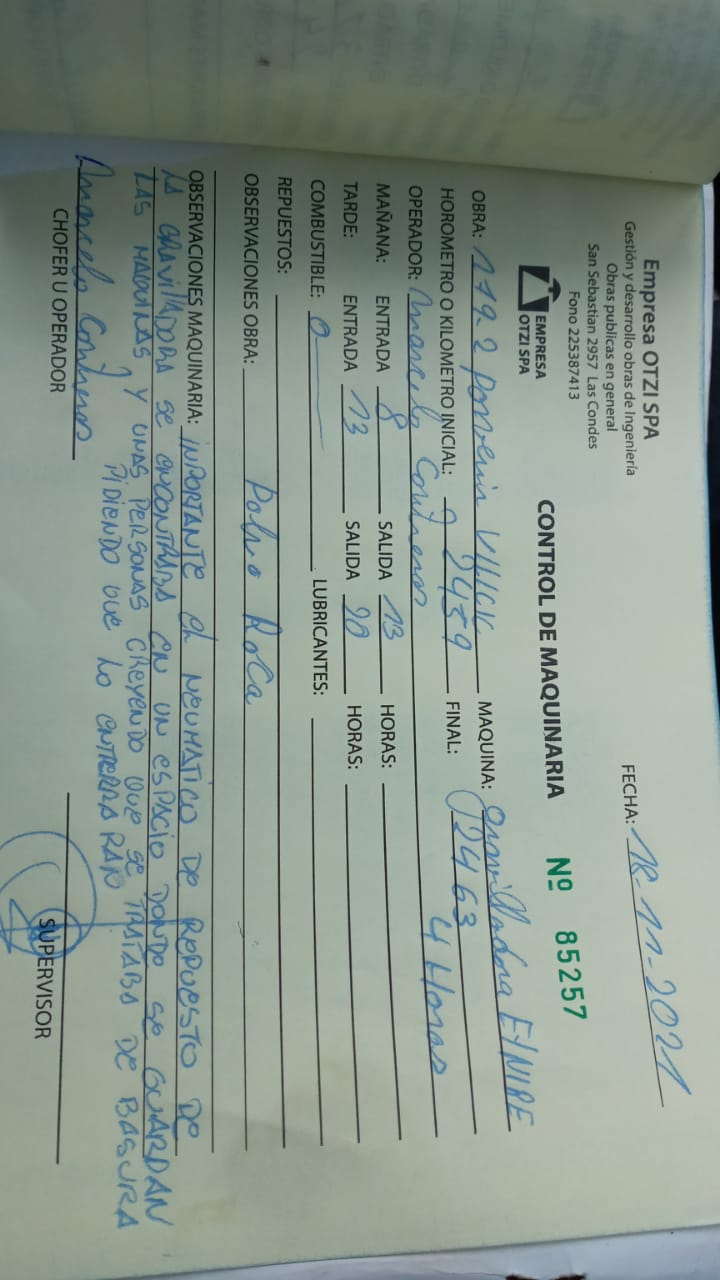 Empresa OTZI SPA
Gestión y desarrollo obras de Ingeniería
Obras publicas en general
San Sebastian 2957 Las Condes
Fono 225387413
EMPRESA
OTZI SPA
FECHA: 18-11-2021
CONTROL DE MAQUINARIA Nº 85257
OBRA: 179-2 Porvenir MAQUINA: gravilladora
HOROMETRO O KILOMETRO INICIAL: 2459 FINAL: 2463
4 Horas
OPERADOR: Marcelo Contreras
MAÑANA: ENTRADA 8 SALIDA 13 HORAS:
TARDE: ENTRADA 13 SALIDA 20 HORAS:
COMBUSTIBLE: 0 LUBRICANTES:
REPUESTOS:
OBSERVACIONES OBRA: Polvo Roca
OBSERVACIONES MAQUINARIA: INPORTANTE EL NEUMATICO DE REPUESTO DE
LA GRAVILLADORA SE ENCONTRABA EN UN ESPACIO DONDE SE GUARDAN
LAS MAQUINAS Y UNAS PERSONAS CREYENDO QUE SE TRATABA DE BASURA
PIDIENDO QUE LO ENTERRARAN
Marcelo Contreras
CHOFER U OPERADOR
SUPERVISOR